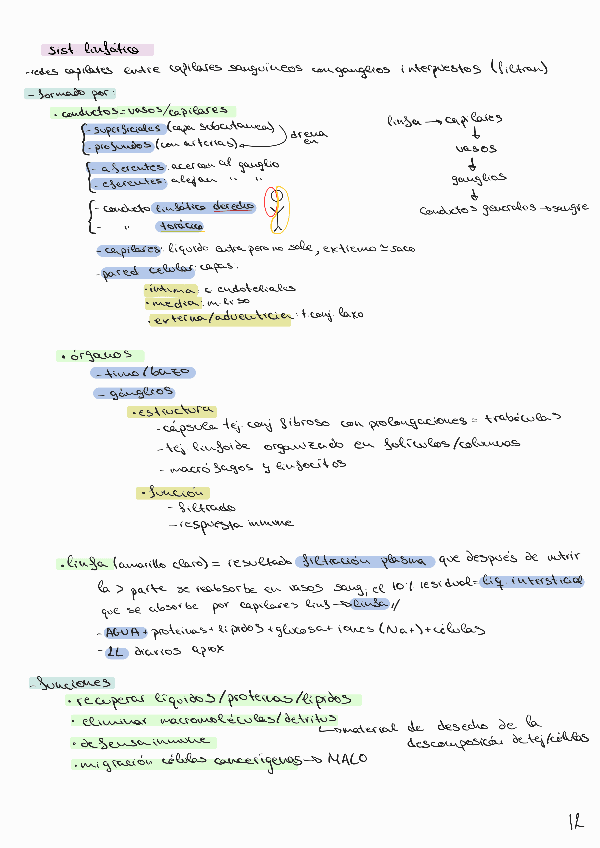 sist linfático
-redes capilares entre capilares sanguíneos con ganglios interpuestos (filtran)
- formado por:
• conductos = vasos/capilares
- superficiales (capa subcutanea)
- profundos (con arterias)
drena en
- aferentes: acercan al ganglio
- eferentes: alejan " "
- conducto linfático derecho
- " torácico
- capilares: liquido entra pero no sale, extremo ≃ saco
- pared celular: capas.
• íntima: c endoteliales
• media: m. liso
• externa/adventicia: t conj. laxo
linfa → capilares
↓
vasos
↓
ganglios
↓
conductos generales → sangre
• órganos
- timo/bazo
- gánglios
• estructura
- cápsula tej. conj fibroso con prolongaciones = trabéculas
- tej linfoide organizado en folículos/columnas
- macrófagos y linfocitos
• función
- filtrado
- respuesta inmune
• linfa (amarillo claro) = resultado filtración plasma que después de nutrir
la > parte se reabsorbe en vasos sang, el 10% residual = liq intersticial
que se absorbe por capilares linf → linfa //
- AGUA + proteinas + lípidos + glucosa + iones (Na+) + células
- 2L diarios aprox
- funciones
• recuperar líquidos/proteínas/lípidos
• eliminar macromoléculas/detritus
↳ material de desecho de la
descomposición de tej/células
• defensa inmune
• migración células cancerígenas → MALO
12